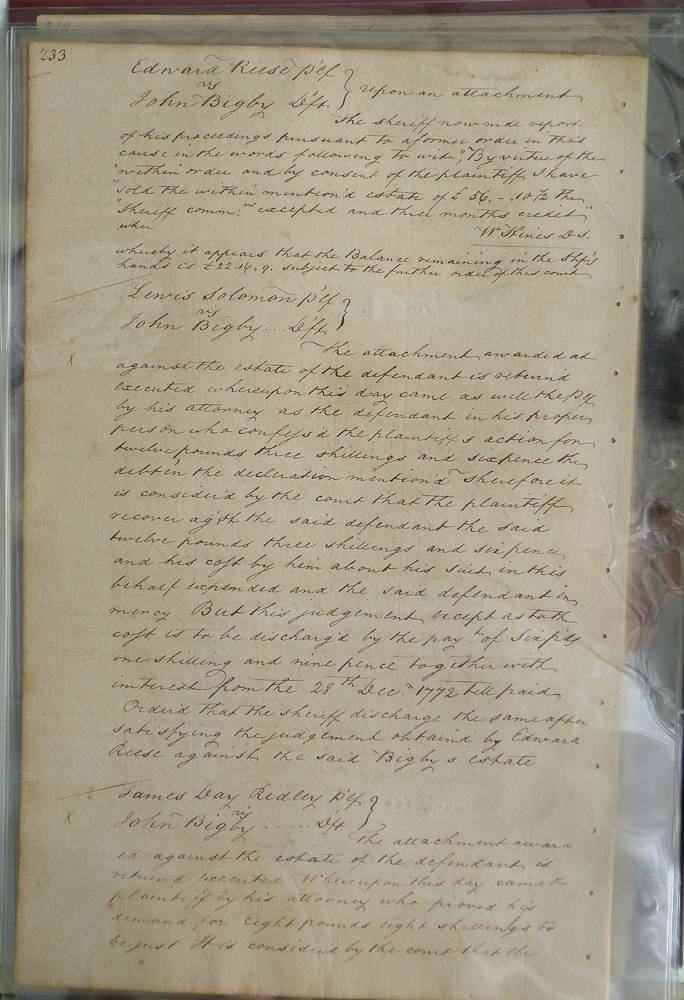 233
Edward Reese Plf
vs
John Bigby Dft } Upon an attachment
The sheriff now made report
of his proceedings pursuant to a former order in this
cause in the words following to wit, "By virtue of the
"within order and by consent of the plaintiff I have
"sold the within mention'd estate of £56. - .10½ the
"Sheriff comm.ns excepted and three months credit"
"
Wm Hines D s.
whereby it appears that the Balance remaining in the Shfs
hands is £22.16.9. subject to the further order of this court
Lewis Solomon Plf
vs
John Bigby ... Dft }
The attachment awarded at
against the estate of the defendant is return'd
Executed whereupon this day came as well the Plf
by his attorney as the defendant in his proper
person who confess'd the plaintiff s action for
twelve pounds three shillings and sixpence the
debt in the declaration mention'd Therefore it
is consider'd by the court that the plaintiff
recover ag'st the said defendant the said
twelve pounds three shillings and six pence
and his cost by him about his suit in this
behalf expended and the said defendant in
mercy But this judgement except as to the
cost is to be discharg'd by the payt of Six pds
one shilling and nine pence together with
interest from the 28th Decr 1772 till paid
Order'd that the sheriff discharge the same after
satisfying the judgement obtain'd by Edward
Reese against the said Bigby s estate
James Day Ridley Plf
vs
John Bigby ..... Dft }
The attachment award
ed against the estate of the defendant is
return'd Executed Whereupon this day came the
plaintiff by his attorney who proved his
demand for Eight pounds eight shillings to
be just It is consider'd by the court that the